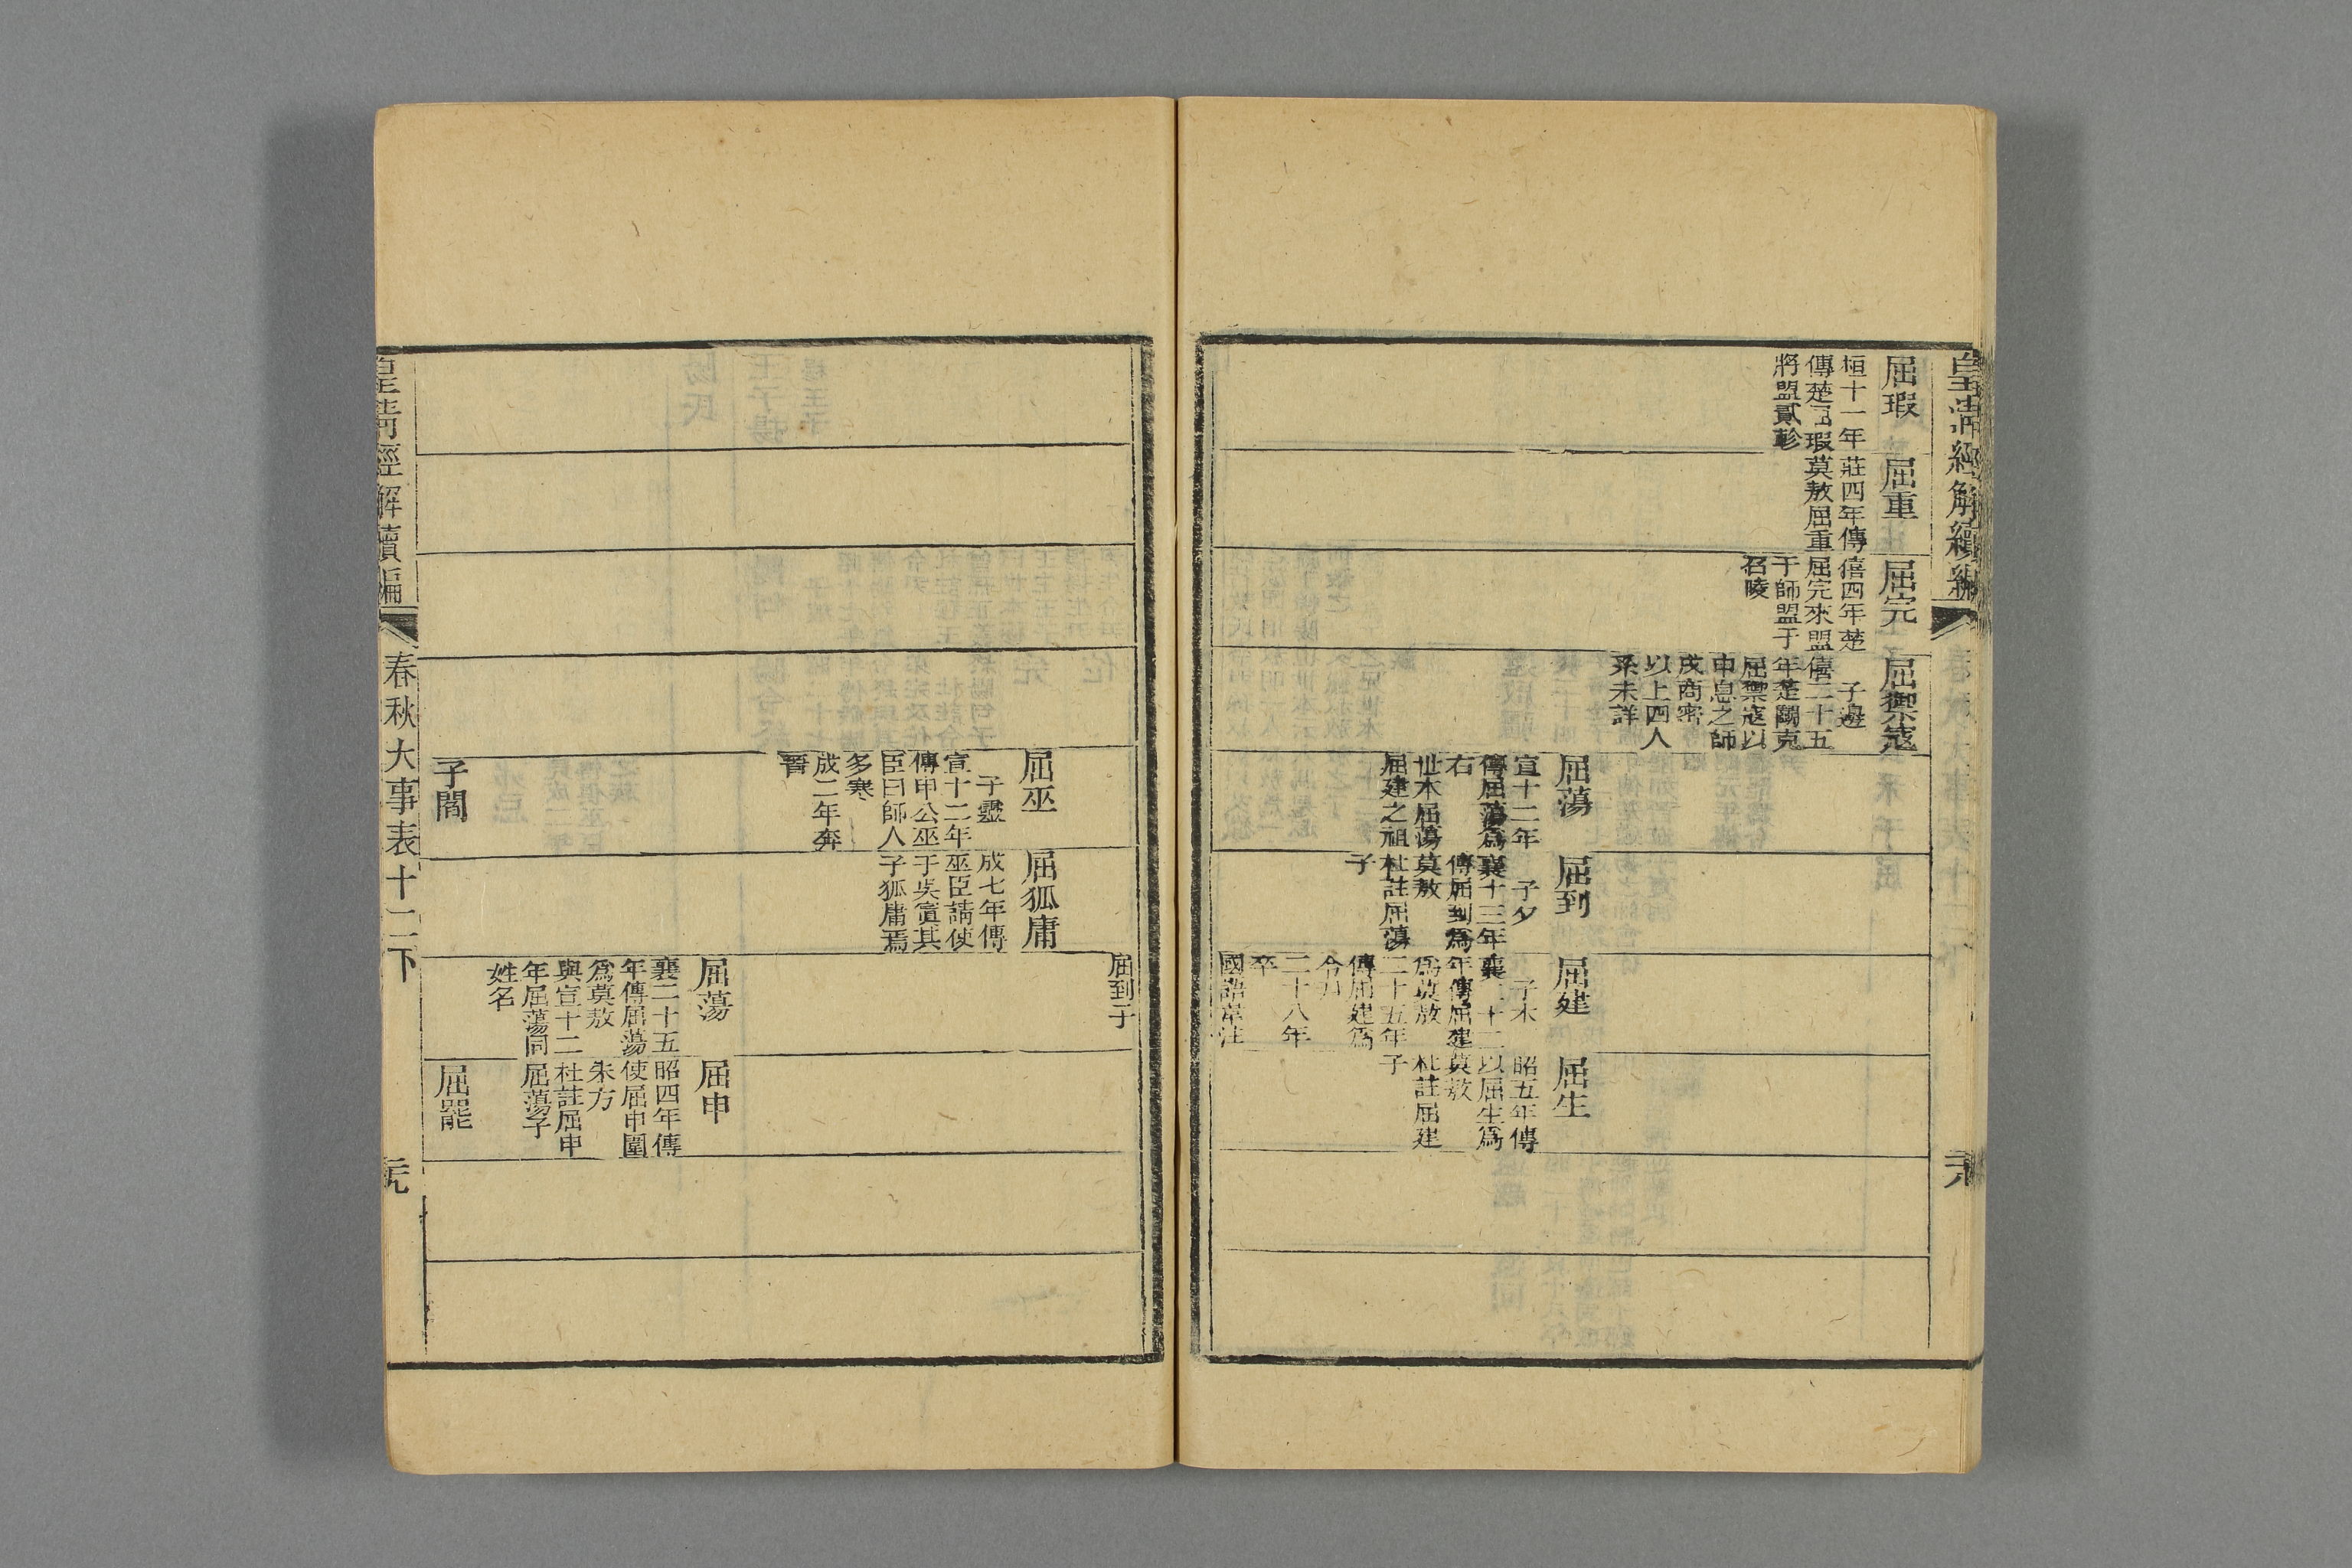 皇淸經解續編
屈瑕
桓十一年
傳楚屈瑕
將盟貳軫
屈重
莊四年傳
莫敖屈重
屈完
僖四年楚
屈完來盟
于師盟于
召陵
屈禦寇
子邊
僖二十五
年楚鬭克
屈禦寇以
申息之師
戍商密
以上四人
系未詳
屈蕩
宣十二年
傳屈蕩爲
右
世本屈蕩
屈建之祖
屈到
子夕
襄十三年
傳屈到爲
莫敖
杜註屈蕩
子
屈建
子木
襄二十二
年傳屈建
爲莫敖
二十五年
傳屈建爲
令尹
二十八年
卒
國語韋注
屈生
昭五年傳
以屈生爲
莫敖
杜註屈建
子
屈到子
屈巫
子靈
宣十二年
傳申公巫
臣曰師人
多寒
成二年奔
晉
屈狐庸
成七年傳
巫臣請使
于吳寘其
子狐庸焉
屈蕩
襄二十五
年傳屈蕩
爲莫敖
與宣十二
年屈蕩同
姓名
屈申
昭四年傳
使屈申圍
朱方
杜註屈申
屈蕩子
子閻
屈罷
皇淸經解續編
春秋大事表十二下